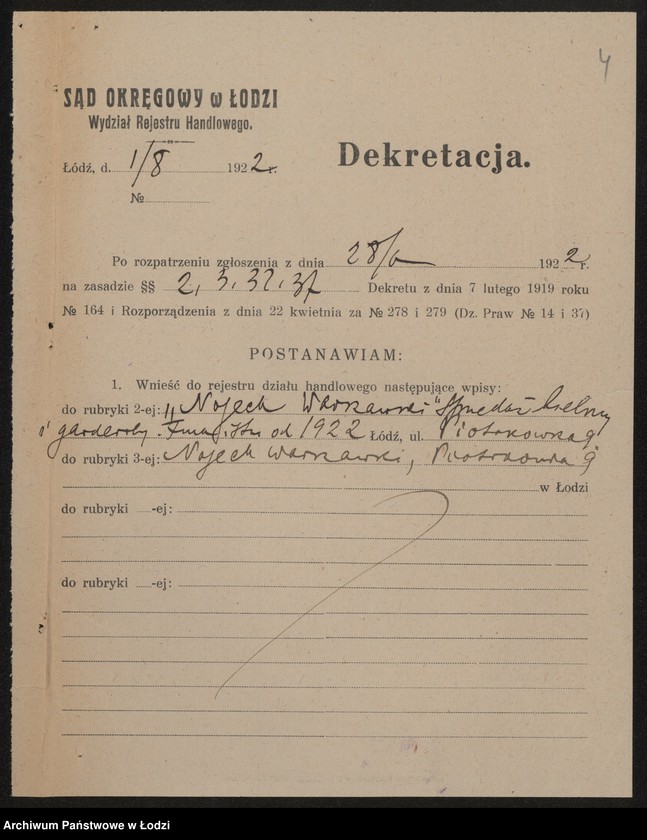 4
SĄD OKRĘGOWY w ŁODZI
Wydział Rejestru Handlowego.
Dekretacja.
Łódź, d. 1/8 1922 r.
№
Po rozpatrzeniu zgłoszenia z dnia 28/6 1922 r.
na zasadzie §§ 2, 3, 32. 37 Dekretu z dnia 7 lutego 1919 roku
№ 164 i Rozporządzenia z dnia 22 kwietnia za № 278 i 279 (Dz. Praw № 14 i 37)
POSTANAWIAM:
1. Wnieść do rejestru działu handlowego następujące wpisy:
do rubryki 2-ej: „Nojech Warszawski" Sprzedaż bielizny
i garderoby. Firma istn. od 1922 Łódź, ul. Piotrkowska 9.
do rubryki 3-ej: Nojech Warszawski, Piotrkowska 9
w Łodzi
do rubryki -ej:
do rubryki -ej:
Archiwum Państwowe w Łodzi